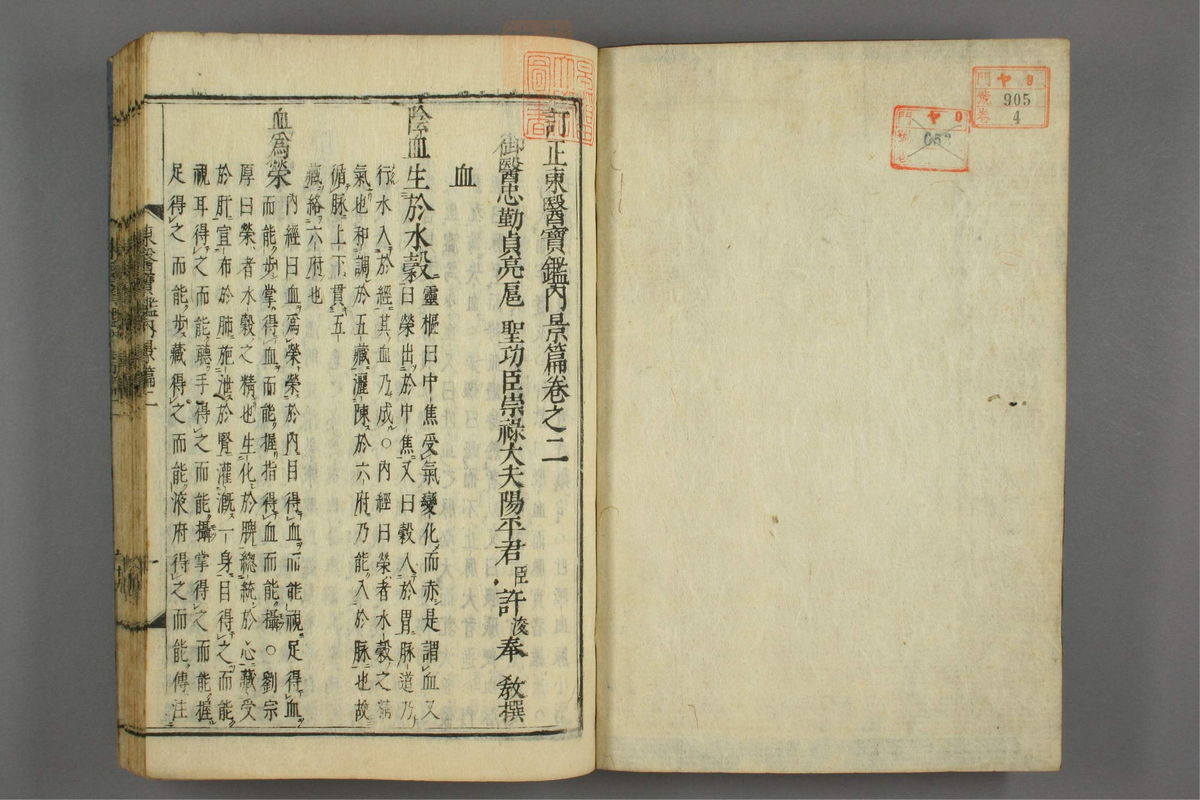 訂正東醫寶鑑內景篇卷之二
御醫忠勤貞亮扈 聖功臣崇祿大夫陽平君 臣 許 浚 奉 敎撰
血
陰血生於水穀 靈樞曰中焦受氣變化而赤是謂血又
曰榮出於中焦又曰穀入於胃脉道乃
行水入於經其血乃成○內經曰榮者水穀之精
氣也和調於五藏灑陳於六府乃能入於脉也故
循脉上下貫五
藏絡六府也
血爲榮 內經曰血爲榮榮於內目得血而能視足得血
而能步掌得血而能握指得血而能攝○劉宗
厚曰榮者水穀之精也生化於脾總統於心藏受
於肝宣布於肺施泄於腎灌漑一身目得之而能
視耳得之而能聽手得之而能攝掌得之而能握
足得之而能步藏得之而能液府得之而能傳注
東醫寶鑑內景篇二
一
門 ヤ 9
號 905
卷 4
門 ヤ 9
圖書